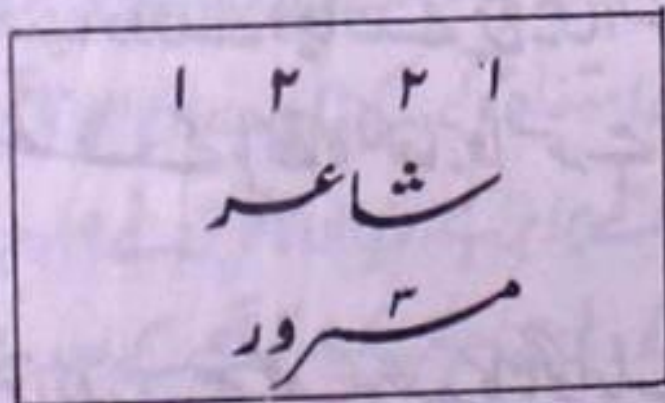 ۱ ۲ ۲ ۱
شاعر
۳
مسرور